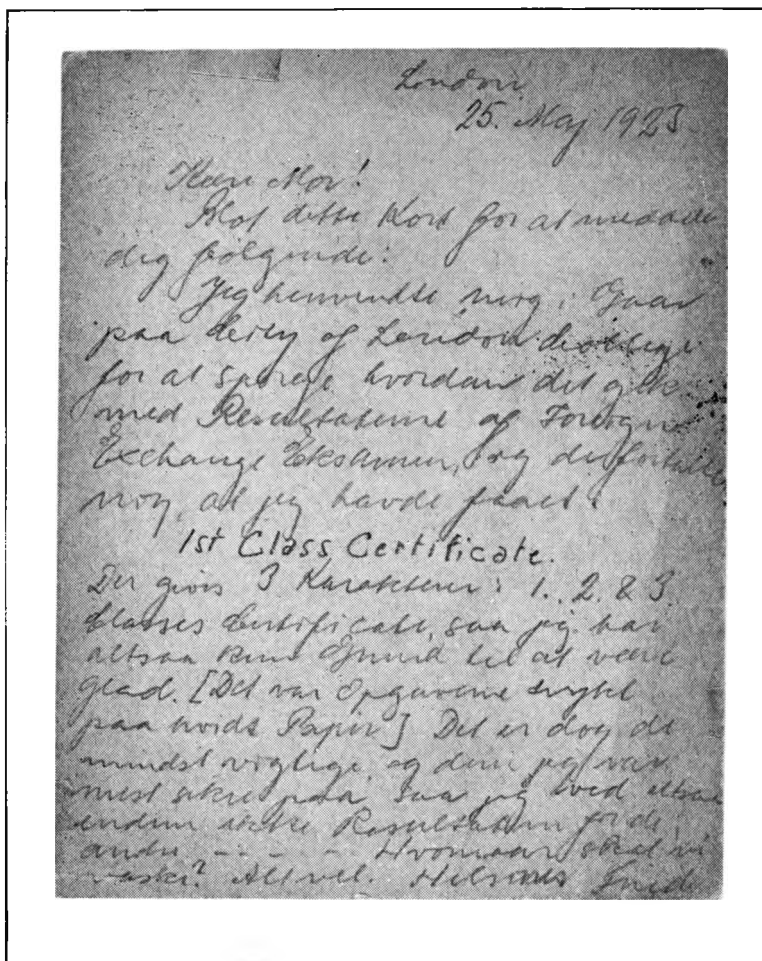 London
25. Maj 1923
Kære Mor!
Blot dette Kort for at meddele
dig følgende:
Jeg henvendte mig i Gaar
paa City of London College
for at spørge hvordan det gik
med Resultaterne af Foreign
Exchange Eksamen, og de fortalte
mig, at jeg havde faaet:
1st Class Certificate.
Der gives 3 Karakterer: 1., 2. & 3.
Classes Certificate, saa jeg har
altsaa kun Grund til at være
glad. [Det var Opgaverne trykt
paa hvidt Papir] Det er dog de
mindst vigtige, og dem jeg var
mest sikre paa, saa jeg ved altsaa
endnu ikke Resultaten for de
andre. - - - - Hvornaar skal vi
vaske? Alt vel. Hilsener